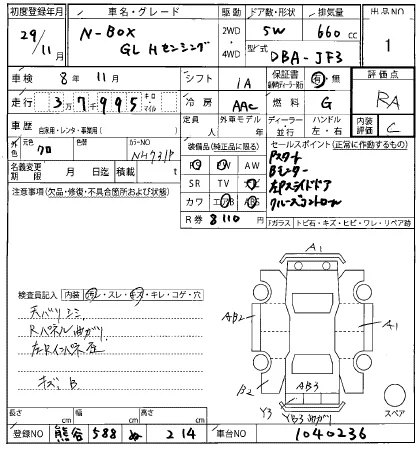 初度登録年月 車名・グレード 駆動 ドア数・形状 排気量 出品NO
29/11月 N-BOX GL Hセンシング 2WD・4WD 5W 660cc 1
型式 DBA-JF3
車検 8年11月 シフト IA 保証書 有・無 評価点
走行 3万7995 キロ・マイル 冷房 AAC 燃料 G RA
車歴 自家用・レンタ・事業用( ) 定員 人 外車モデル 年 ディーラー・並行 ハンドル 左・右 内装評価 C
外色 元色 クロ 色替 カラーNO NH731P
装備品(純正品に限る) セールスポイント(正常に作動するもの)
名義変更期限 月 日迄 積載 t
PS PW AW
SR TV ナビ
カワ エアB ABS
R券 8110円
Pスタート
Bモニター
左Pスライドドア
クルーズコントロール
注意事項(欠品・修復・不具合箇所および状態)
Fガラス トビ石・キズ・ヒビ・ワレ・リペア跡
検査員記入 内装 汚レ・スレ・キズ・キレ・コゲ・穴
天バリシミ
Rパネル曲がり
左Rインパネ歪
キズ、B
A1
AB2
A1
B2
AB3
Y3
YB3 曲がり
スペア
長さ cm 幅 cm 高さ cm
登録NO 熊谷 588 ぬ 214 車台NO 1040236